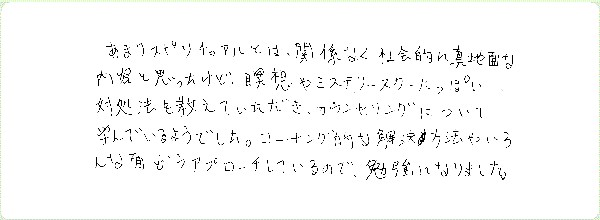 あまりスピリチュアルとは、関係なく社会的に真地面な
内容と思ったけど、瞑想やミステリースクールっぽい
対処法を教えていただき、カウンセリングについて
学んでいるようでした。コーチング的な解決方法やいろ
んな面からアプローチしているので、勉強になりました